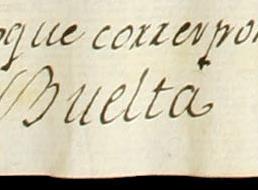 oque correspon
Buelta